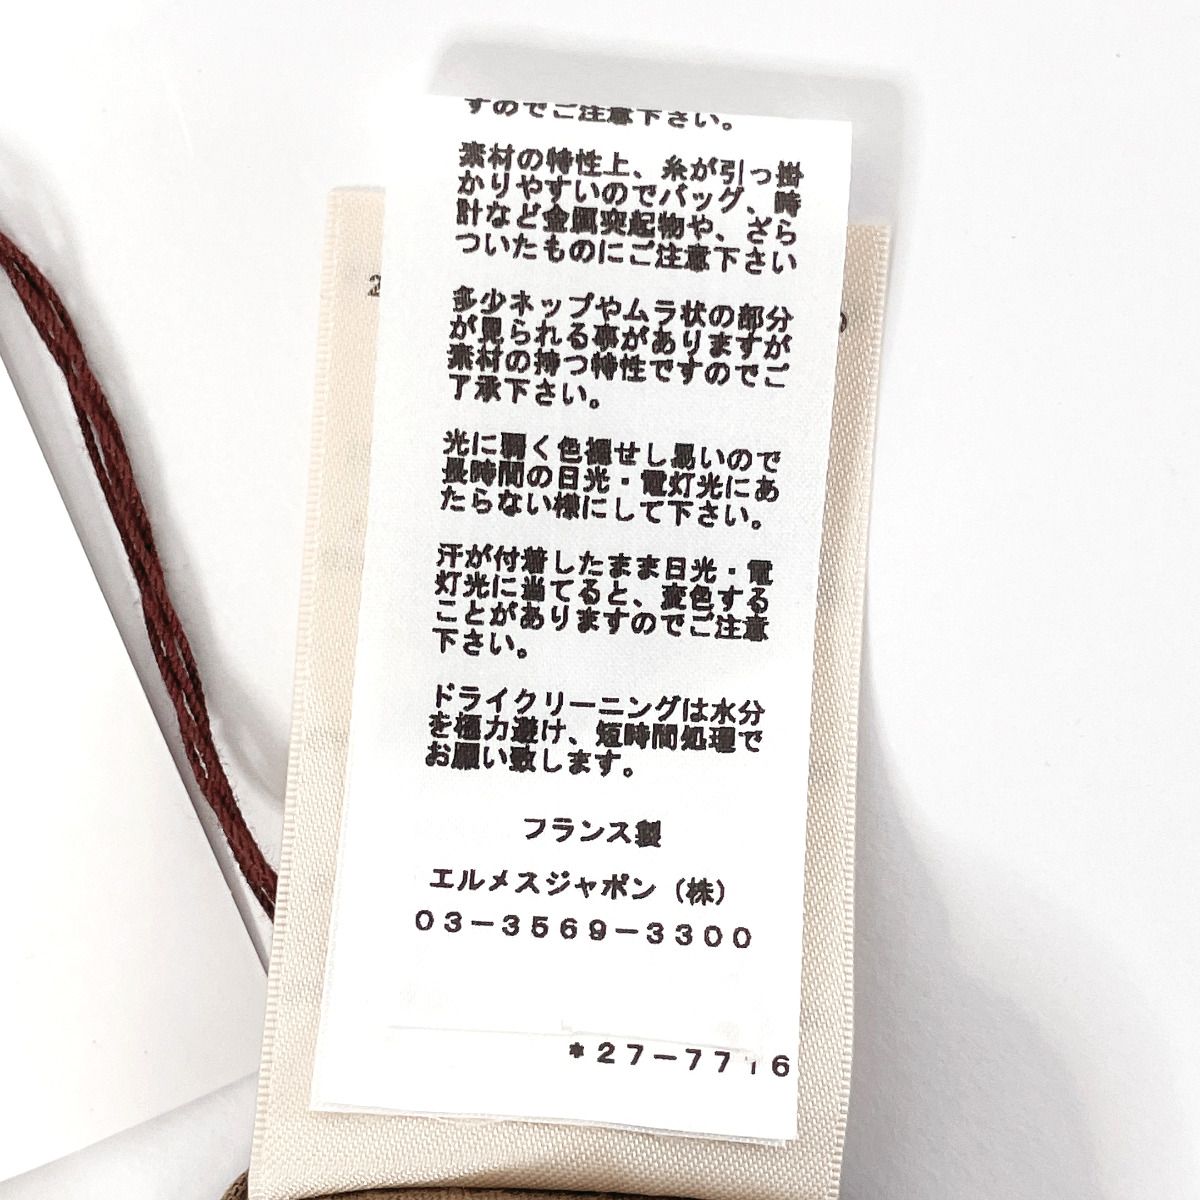 すのでご注意下さい。
素材の特性上、糸が引っ掛
かりやすいのでバッグ、時
計など金属突起物や、ざら
ついたものにご注意下さい
多少ネップやムラ状の部分
が見られる事がありますが
素材の持つ特性ですのでご
了承下さい。
光に弱く色褪せし易いので
長時間の日光・電灯光にあ
たらない様にして下さい。
汗が付着したまま日光・電
灯光に当てると、変色する
ことがありますのでご注意
下さい。
ドライクリーニングは水分
を極力避け、短時間処理で
お願い致します。
フランス製
エルメスジャポン（株）
03－3569－3300
*27－7716